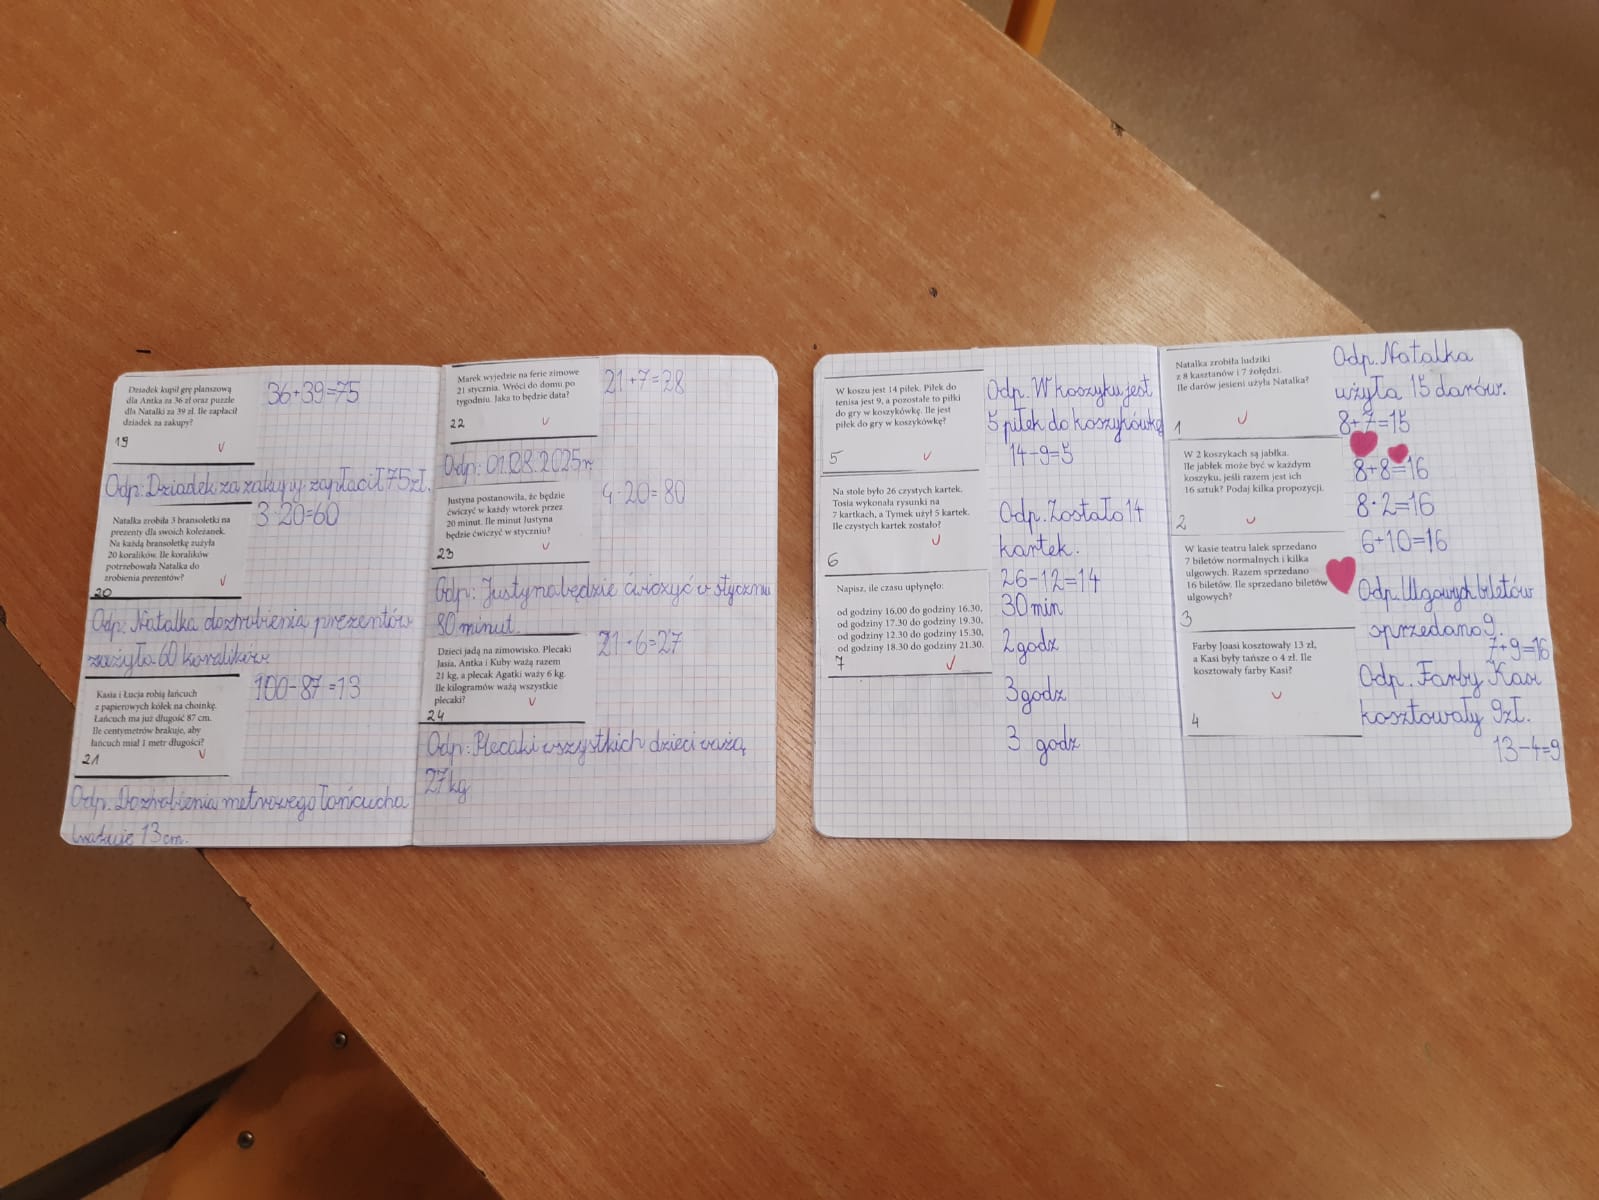 Dziadek kupił grę planszową
dla Antka za 36 zł oraz puzzle
dla Natalki za 39 zł. Ile zapłacił
dziadek za zakupy?
19
36+39=75
Odp: Dziadek za zakupy zapłacił 75zł.
Natalka zrobiła 3 bransoletki na
prezenty dla swoich koleżanek.
Na każdą bransoletkę zużyła
20 koralików. Ile koralików
potrzebowała Natalka do
zrobienia prezentów?
20
3·20=60
Odp. Natalka do zrobienia prezentów
zużyła 60 koralików
Kasia i Łucja robią łańcuch
z papierowych kółek na choinkę.
Łańcuch ma już długość 87 cm.
Ile centymetrów brakuje, aby
łańcuch miał 1 metr długości?
21
100-87=13
Odp. Do zrobienia metrowego łańcucha
brakuje 13cm.
Marek wyjedzie na ferie zimowe
21 stycznia. Wróci do domu po
tygodniu. Jaka to będzie data?
22
21+7=28
Odp:
Justyna postanowiła, że będzie
ćwiczyć w każdy wtorek przez
20 minut. Ile minut Justyna
będzie ćwiczyć w styczniu?
23
4·20=80
Odp: Justyna będzie ćwiczyć w styczniu
80 minut.
Dzieci jadą na zimowisko. Plecaki
Jasia, Antka i Kuby ważą razem
21 kg, a plecak Agatki waży 6 kg.
Ile kilogramów ważą wszystkie
plecaki?
24
21+6=27
Odp: Plecaki wszystkich dzieci ważą
27kg
W koszu jest 14 piłek. Piłek do
tenisa jest 9, a pozostałe to piłki
do gry w koszykówkę. Ile jest
piłek do gry w koszykówkę?
5
Odp. W koszyku jest
5 piłek do koszykówki
14-9=5
Na stole było 26 czystych kartek.
Tosia wykonała rysunki na
7 kartkach, a Tymek użył 5 kartek.
Ile czystych kartek zostało?
6
Odp. Zostało 14
kartek.
26-12=14
Napisz, ile czasu upłynęło:
od godziny 16.00 do godziny 16.30,
od godziny 17.30 do godziny 19.30,
od godziny 12.30 do godziny 15.30,
od godziny 18.30 do godziny 21.30.
7
30min
2godz
3godz
3 godz
Natalka zrobiła ludziki
z 8 kasztanów i 7 żołędzi.
Ile darów jesieni użyła Natalka?
1
Odp. Natalka
użyła 15 darów.
8+7=15
W 2 koszykach są jabłka.
Ile jabłek może być w każdym
koszyku, jeśli razem jest ich
16 sztuk? Podaj kilka propozycji.
2
8+8=16
8·2=16
6+10=16
W kasie teatru lalek sprzedano
7 biletów normalnych i kilka
ulgowych. Razem sprzedano
16 biletów. Ile sprzedano biletów
ulgowych?
3
Odp. Ulgowych biletów
sprzedano 9.
7+9=16
Farby Joasi kosztowały 13 zł,
a Kasi były tańsze o 4 zł. Ile
kosztowały farby Kasi?
4
Odp. Farby Kasi
kosztowały 9zł.
13-4=9